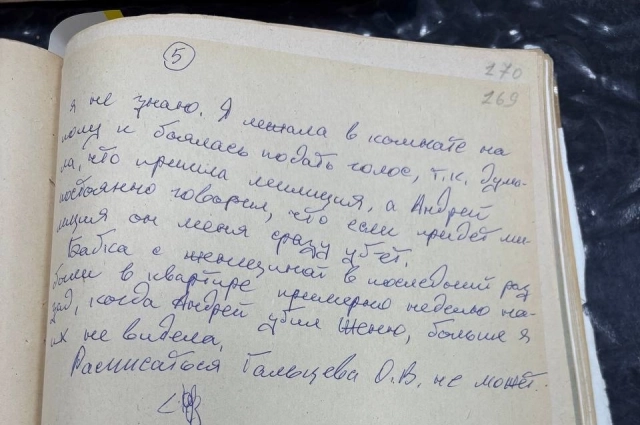 5
270
269
я не знаю. Я лежала в комнате на
полу и боялась подать голос, т.к. дума-
ла, что пришла милиция, а Андрей
постоянно говорил, что если придет ми-
лиция он меня сразу убьет.
Бабка с женщиной в последний раз
были в квартире примерно неделю на-
зад, когда Андрей убил Женю, больше я
их не видела.
Расписаться Гальцева О.В. не может.